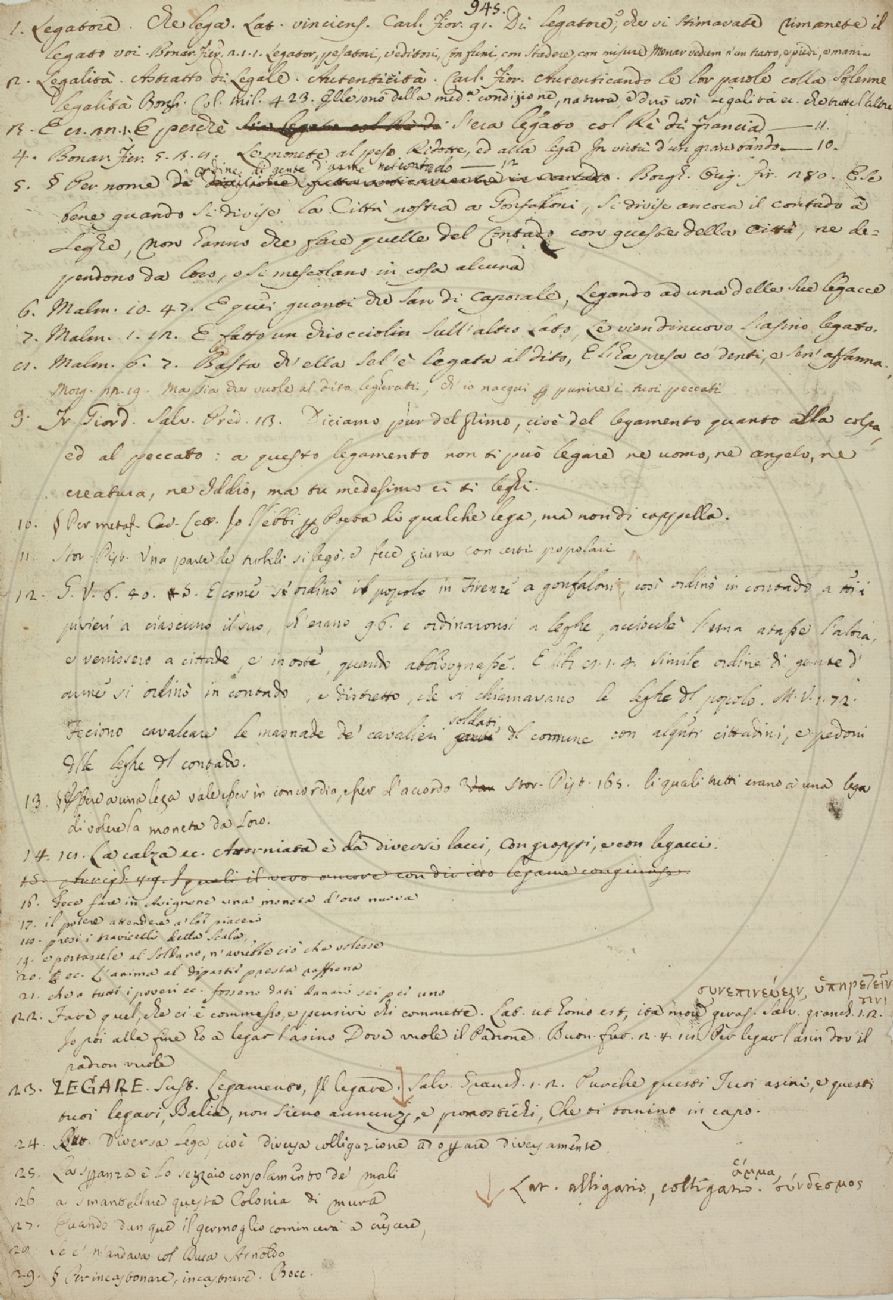 945.
1. Legatore. Che lega. Lat. vinciens. Carl. Fior. 91. Di legatore, che vi stimavate rimanete il
legato voi. Bonar. Fier. 2.1.1. Legator, pesatori, veditori,
2. Legalità. Astratto di Legale. Autenticità. Carl. Fior. Autenticando le lor parole colla solenne
legalità Borgh. Col. Mil. 423. Elle sono della med.a condizione, natura, e diciò così legalità ec. che tutte l'altre
3. E perchè s'era legato col Rè di Francia — 11.
4. Bonar. Fier. 5. 3. Le monete al peso Ridotte, ed alla lega In virtù d'un gran bando — 10.
ordine di gente d'arme nel contado — 12
5. § Per nome di Borgh. Orig. Fir. 280. E se
bene quando si divise la Città nostra a Gonfaloni, si divise ancora il contado a
Leghe, non hanno che fare quelle del Contado con queste della Città, ne de=
pendono da loro, o si mescolano in cosa alcuna
6. Malm. 10. 47. E quei guanti che san di caporale, Legando ad una delle sue legacce
7. Malm. 1. E fatto un chiocciolin sull'altro lato, Le vien di nuovo l'asino legato.
Malm. 6. 7. Basta ch'ella sel'è legata al dito, E l'ha presa co' denti, e sen'affanna.
Morg. Ma sia che vuole al dito legherati, Ch'io nacqui per punire i tuoi peccati
9. Fr. Giord. Salv. Pred. 13. Diciamo pur del primo, cioè del legamento quanto alla colpa,
ed al peccato: a questo legamento non ti può legare ne uomo, ne angelo, ne
creatura, ne Iddio, ma tu medesimo ci ti leghi.
10. § Per metaf. Car. Lett. Io l'ebbi per Poeta di qualche lega, ma non di cappella.
11. Stor. Pist. Una parte le nobili si legò, e fece giura con certi popolari
12. G. V. 6. 40. E come s'ordinò il popolo in Firenze a gonfaloni, così ordinò in contado a tutti i
pivieri a ciascuno il suo, ch'erano 96. e ordinaronsi a leghe, acciochè l'una atasse l'altra,
e venissero a cittade, e in oste, quando abbisognasse. E simile ordine di gente d'
arme si ordinò in contado, e distretto, che si chiamavano le leghe del popolo. M. V. 1. 72.
Feciono cavalcare le masnade de' cavalieri soldati del comune con alquti cittadini, e pedoni
delle leghe del contado.
13. § Essere a una lega vale esser in concordia, esser d'accordo Stor. Pist. 165. li quali tutti erano a una lega
di volere la moneta da loro.
14. La calza ec. Attorniata è da diversi lacci, con groppi, e con legacci.
15. I quali il vero amore con diritto legame congiunse
16. Fece fare in Avignone una moneta d'oro nuova
17. il potere attendere a' lor piaceri
presi i travicelli della scala,
19. e portassele al Soldano, n'avrebbe ciò che volesse
20. ec. L'anima al dipartir presta raffrena
21. che a tutti i poveri ec. fossono dati danari sei per uno
συνεπινεύειν, ὑπηρετεῖν
τινι
22. Fare quel, che ci è commesso, e pensivi chi commette. Lat. ut homo est, ita morem geras. Salv. Granch. 1.2.
Io poi alla fine Ho a legar l'asino Dove vuole il Padrone. Buon. Fier. 2. 4. Per legar l'asin dov'il
padron vuole
23. LEGARE. Sust. Legamento, Il legare. Salv. Granch. 1. 2. Purche questi Tuoi asini, e questi
tuoi legari, Balia, non sieno annunzj, e pronostichi, Che ti tornino in capo.
24. Diversa lega, cioè diversa colligazione ad oprare diversamente
25. La speranza è lo sezzaio consolamento de' mali
26. a smantellare questa Colonia di mura
27. Quando dunque il germoglio comincerà a crescere,
Se n'andava col Duca Arnoldo
29. § Per incastonare, incastrare. Bocc.
Lat. alligatio, colligatio. ἅμμα σύνδεσμος